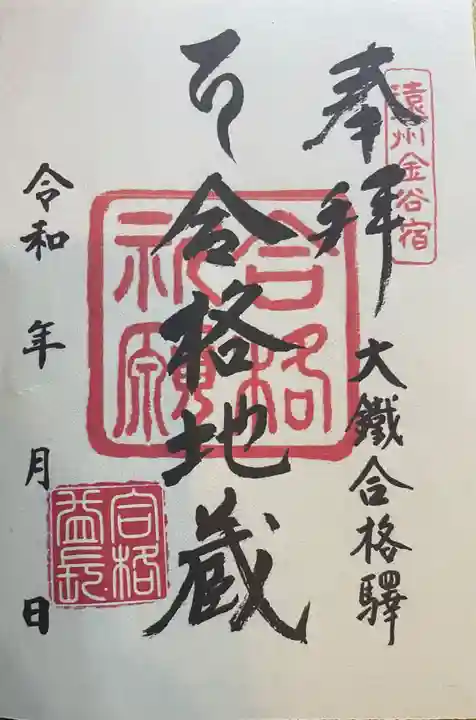 遠州金谷宿
奉拝
大鐵合格驛
合格地蔵
合格
祈願
令和 年 月 日
合格
益長